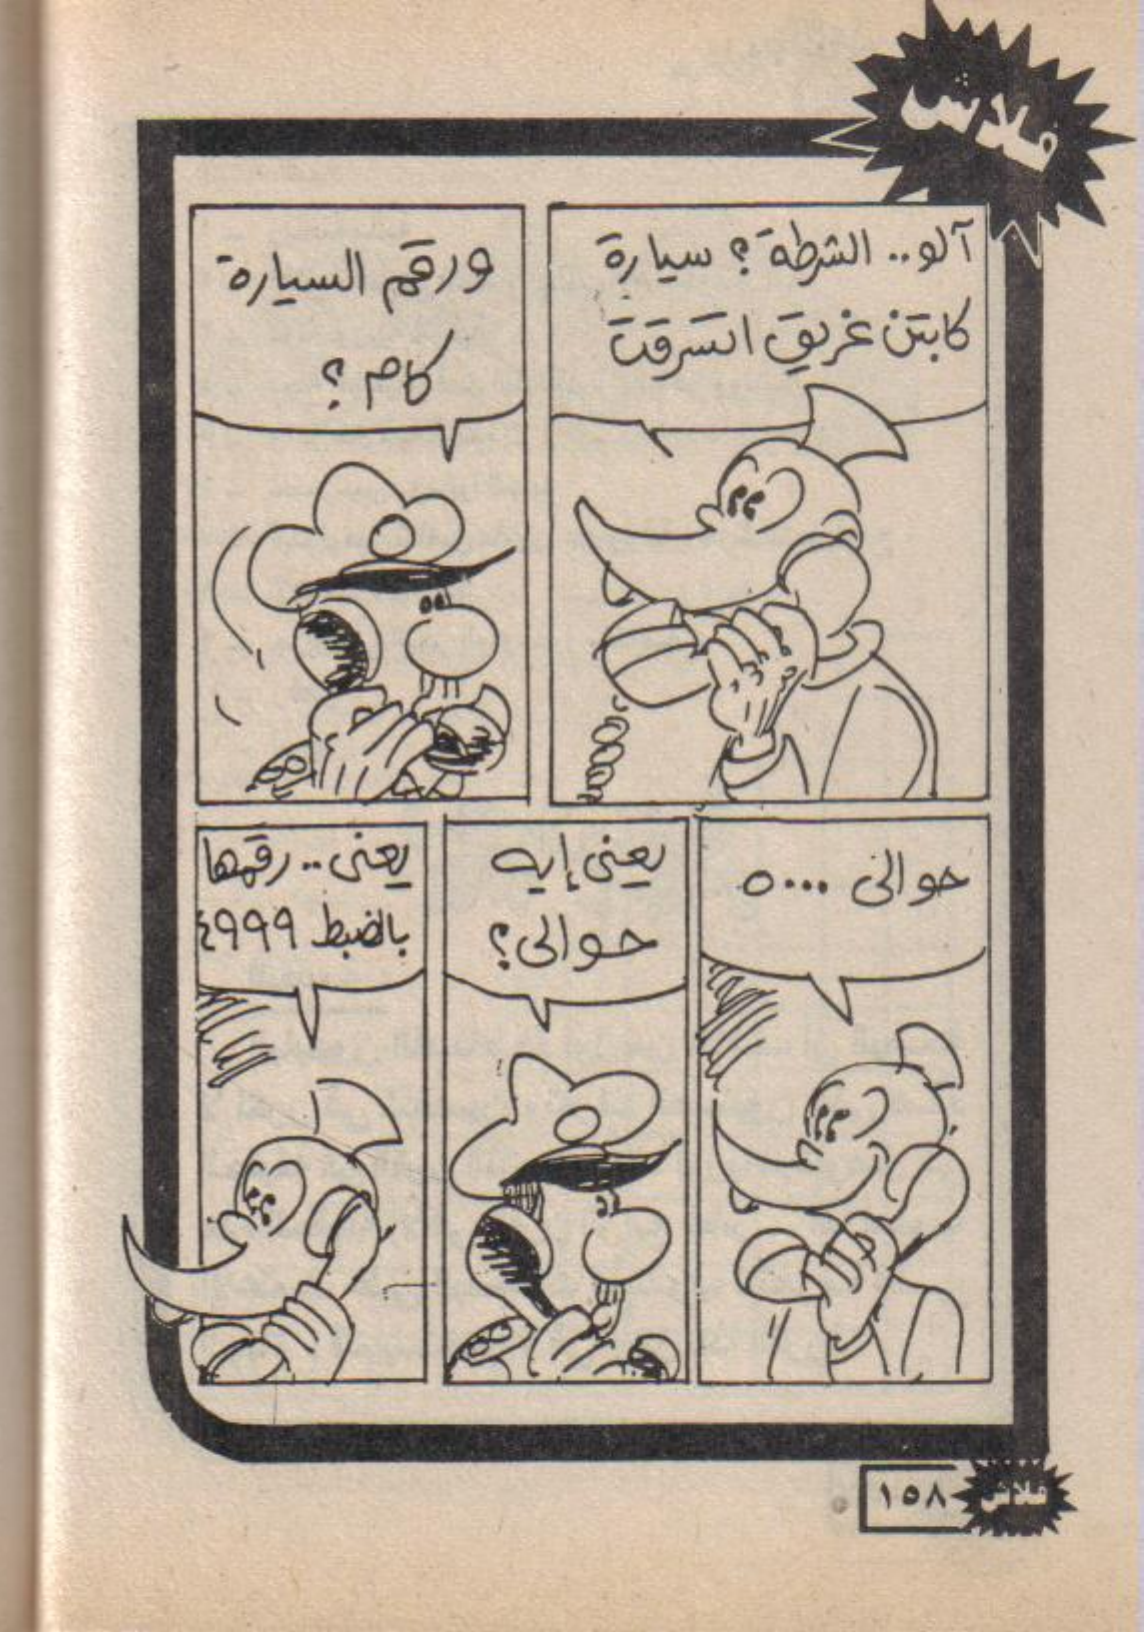 فلاش
آلو.. الشرطة؟ سيارة
كابتن غريق اتسرقت
ورقم السيارة
كام؟
حوالى ٥٠٠٠
يعنى إيه
حوالى؟
يعنى.. رقمها
بالضبط ٤٩٩٩
١٥٨
فلاش